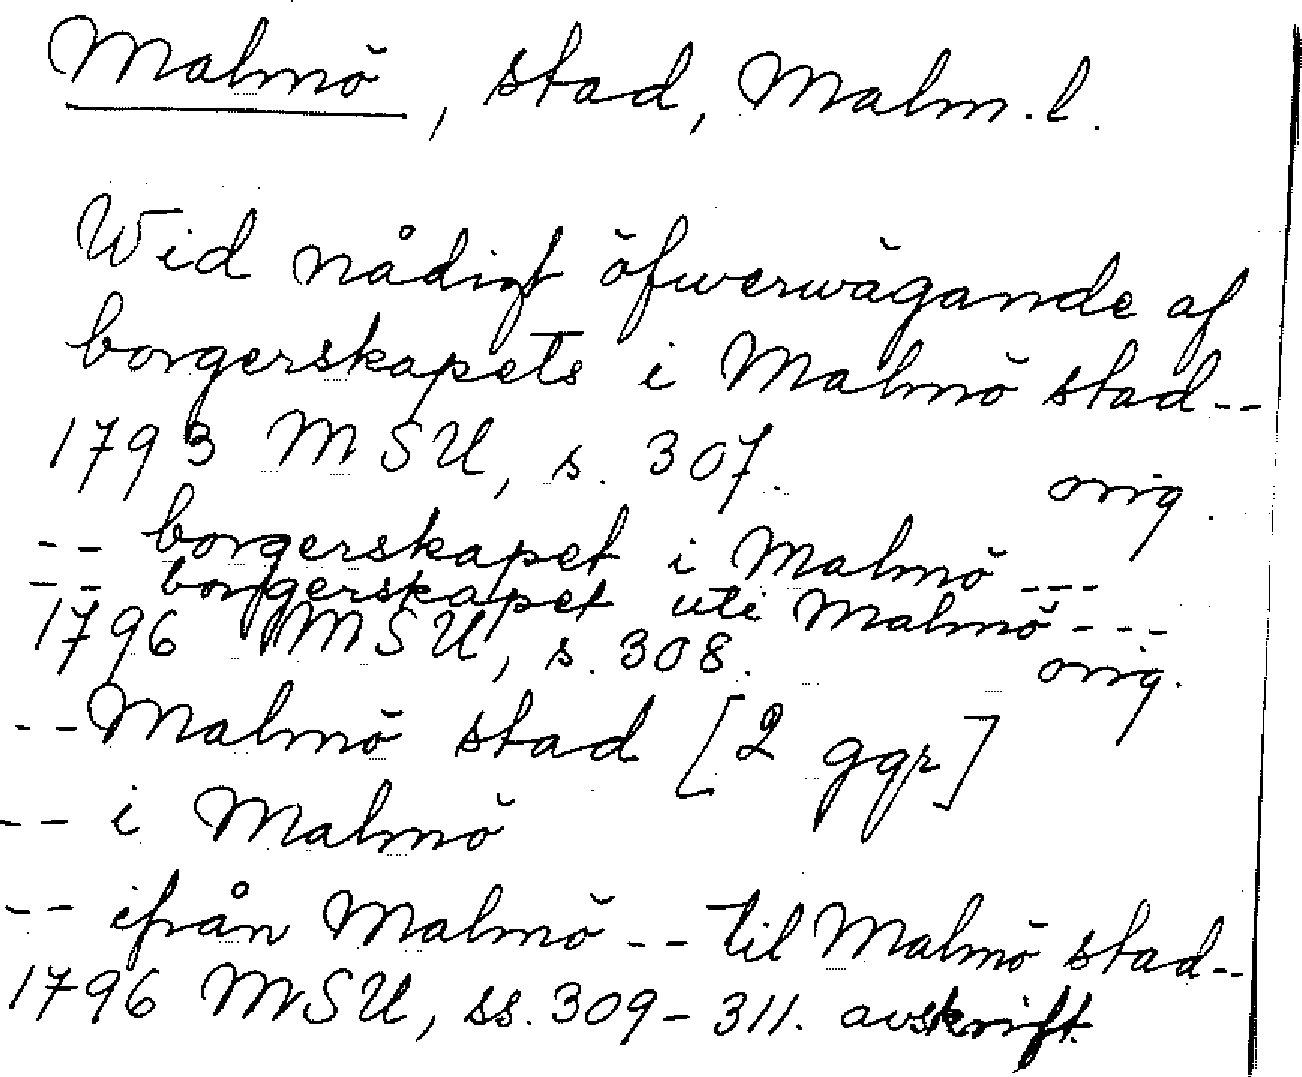 Malmö, stad, Malm. l.
Wid nådigt öfwerwägande af
borgerskapets i Malmö stad--
1793 MSU, s. 307. orig.
-- borgerskapet i Malmö ---
-- borgerskapet uti Malmö ---
1796 MSU, s. 308. orig.
-- Malmö stad [2 ggr]
-- i Malmö
-- ifrån Malmö -- til Malmö stad--
1796 MSU, ss. 309-311. avskrift.